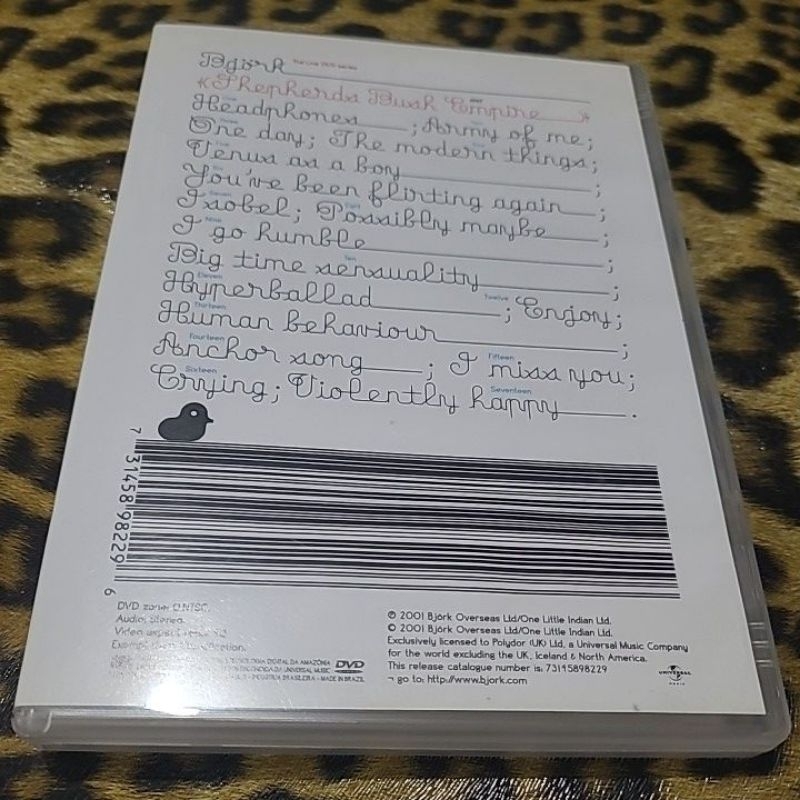 Björk The Live DVD series
<Shepherds Bush Empire>
Headphones ; Army of me;
One day; The modern things;
Venus as a boy ;
You've been flirting again ;
Isobel; Possibly maybe ;
I go humble ;
Big time sensuality ;
Hyperballad ; Enjoy;
Human behaviour ;
Anchor song ; I miss you;
Crying; Violently happy .
Nine
Ten
Eleven
Twelve
Thirteen
Fourteen
Fifteen
Sixteen
Seventeen
7 31458 98229 6
DVD zone: 0 NTSC.
Audio: stereo.
Exempt from classification.
DVD
MADE IN BRAZIL
℗ 2001 Björk Overseas Ltd/One Little Indian Ltd.
© 2001 Björk Overseas Ltd/One Little Indian Ltd.
Exclusively licensed to Polydor (UK) Ltd, a Universal Music Company
for the world excluding the UK, Iceland & North America.
This release catalogue number is: 73145898229
¬ go to: http://www.bjork.com
UNIVERSAL